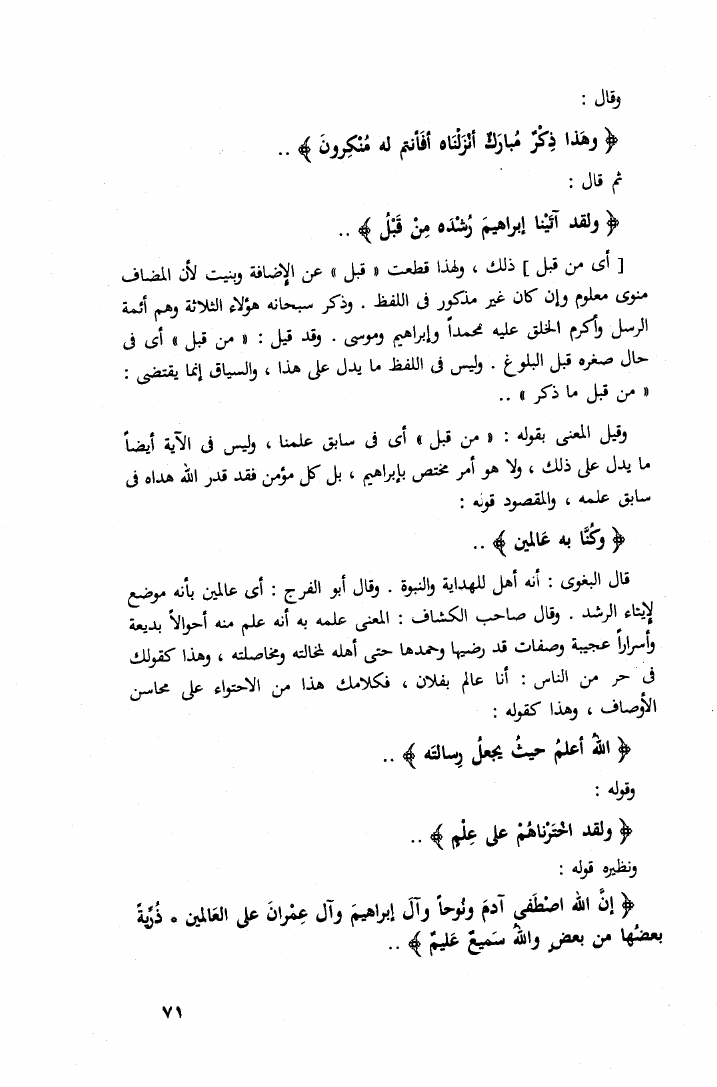 وقال :
﴿ وهَذا ذِكْرٌ مُبارَكٌ أنْزَلْنَاه أفَأنتم له مُنْكِرونَ ﴾ ..
ثم قال :
﴿ ولقد آتَيْنا إبراهيمَ رُشْدَه مِنْ قَبْلُ ﴾ ..
[ أى من قبل ] ذلك ، ولهذا قطعت « قبل » عن الإضافة وبنيت لأن المضاف
منوى معلوم وإن كان غير مذكور فى اللفظ . وذكر سبحانه هؤلاء الثلاثة وهم أئمة
الرسل وأكرم الخلق عليه محمداً وإبراهيم وموسى . وقد قيل : « من قبل » أى فى
حال صغره قبل البلوغ . وليس فى اللفظ ما يدل على هذا ، والسياق إنما يقتضى :
« من قبل ما ذكر » ..
وقيل المعنى بقوله : « من قبل » أى فى سابق علمنا ، وليس فى الآية أيضاً
ما يدل على ذلك ، ولا هو أمر مختص بإبراهيم ، بل كل مؤمن فقد قدر الله هداه فى
سابق علمه ، والمقصود قوله :
﴿ وكُنَّا به عَالمين ﴾ ..
قال البغوى : أنه أهل للهداية والنبوة . وقال أبو الفرج : أى عالمين بأنه موضع
لإيتاء الرشد . وقال صاحب الكشاف : المعنى علمه به أنه علم منه أحوالاً بديعة
وأسراراً عجيبة وصفات قد رضيها وحمدها حتى أهله لمخالته ومخاصلته ، وهذا كقولك
فى حر من الناس : أنا عالم بفلان ، فكلامك هذا من الاحتواء على محاسن
الأوصاف ، وهذا كقوله :
﴿ اللهُ أعلمُ حيثُ يجعلُ رِسالتَه ﴾ ..
وقوله :
﴿ ولقد اخْتَرْناهُمْ على عِلْمٍ ﴾ ..
ونظيره قوله :
﴿ إنَّ الله اصْطَفى آدمَ ونُوحاً وآلَ إبراهيمَ وآل عِمْرانَ على العَالمين ٭ ذُرِّيةً
بعضُها من بعضٍ واللهُ سَميعٌ عَليمٌ ﴾ ..
٧١